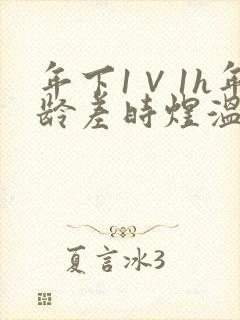 年下1V1h年
龄差时煌温
夏言冰3